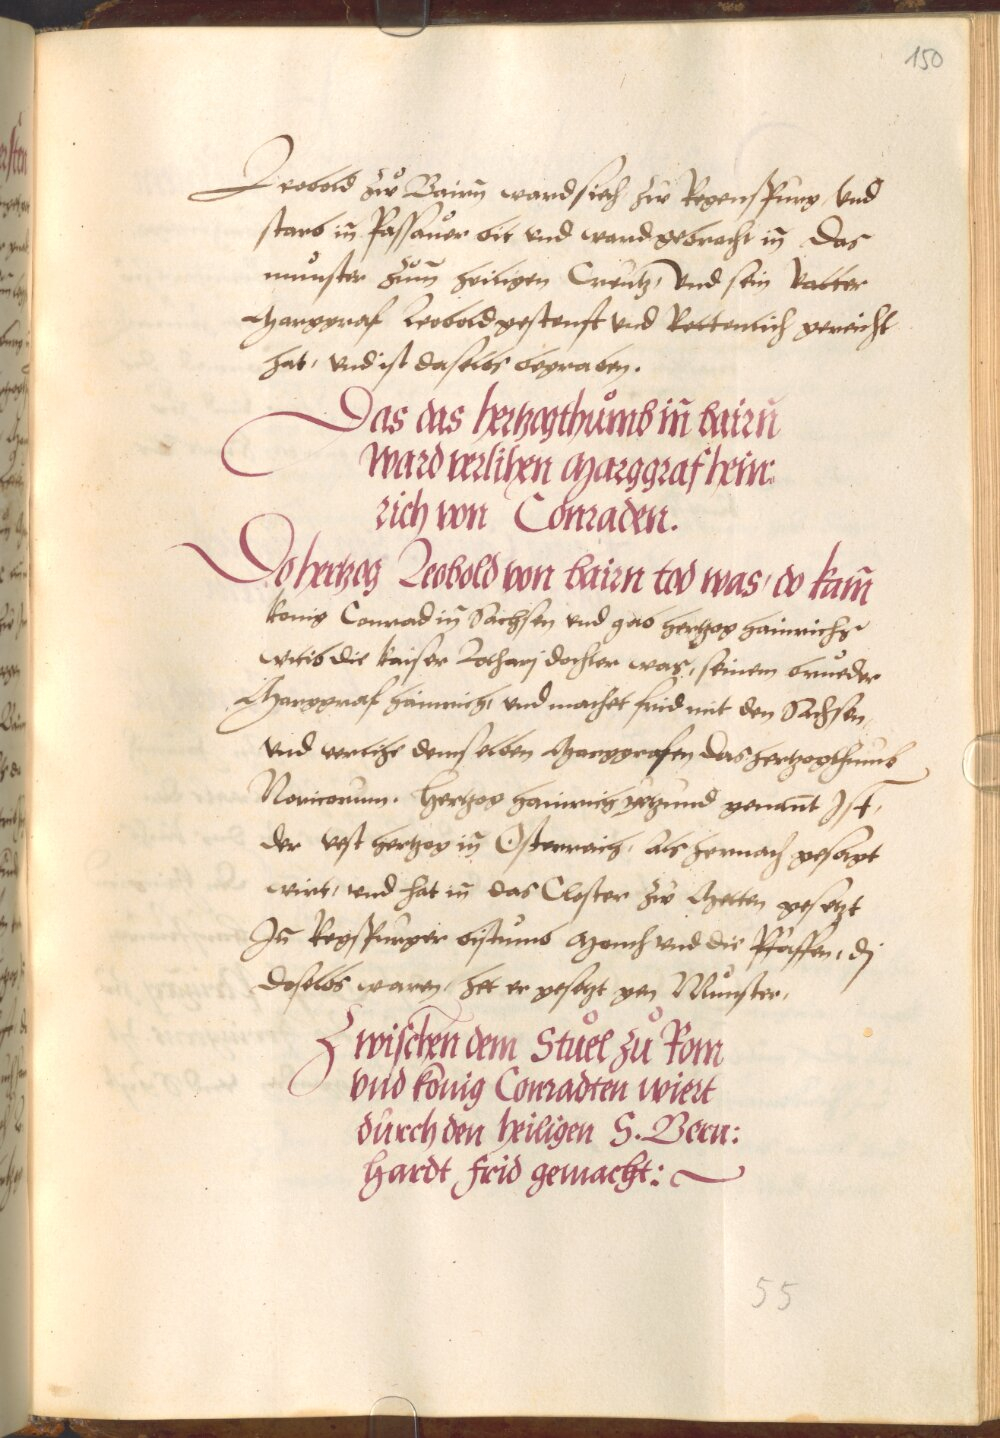 150
Leobold zu̇ Bairn̄ ward siech zu̇ Regenspurg, vnd
starb in̄ Passawer bit vnd ward gebracht in̄ das
mu̇nster zu̇m heiligen Creutz, Vnd sein vatter
Marggraf Leobold gestenft vnd Rettenlich gereicht
hat, vnd ist daselbs begraben.
Das das hertzogthůmb in̄ bairn̄
ward verlihen Marggraf hein:
rich von Conraden.
Do hertzog Leobold von bairn tod was, do kam̄
konig Conrad in̄ Sachsen vnd gab hertzog hainrichs
weib die kaiser Lotharj dochter was, seinem brueder
Marggraf hainrich, vnd machet frid mit den Sachsen,
vnd verlihe demselben Marggrafen das hertzogthumb
Noricorum. Hertzog hainrich yetzund genant Ist,
der erst hertzog in̄ Osterreich, als hernach gesagt
wirt, vnd hat in̄ das Closter zu̇ Metten gesetzt
In̄ Regspurger bistumb Monch vnd die Pfaffen, dj
doselbs waren, het er gesetzt gen Mu̇nster.
Zwischen dem Stůel zů Rom
vnd kőnig Conradten wiert
durch den heiligen S. Bern:
hardt frid gemacht:
55